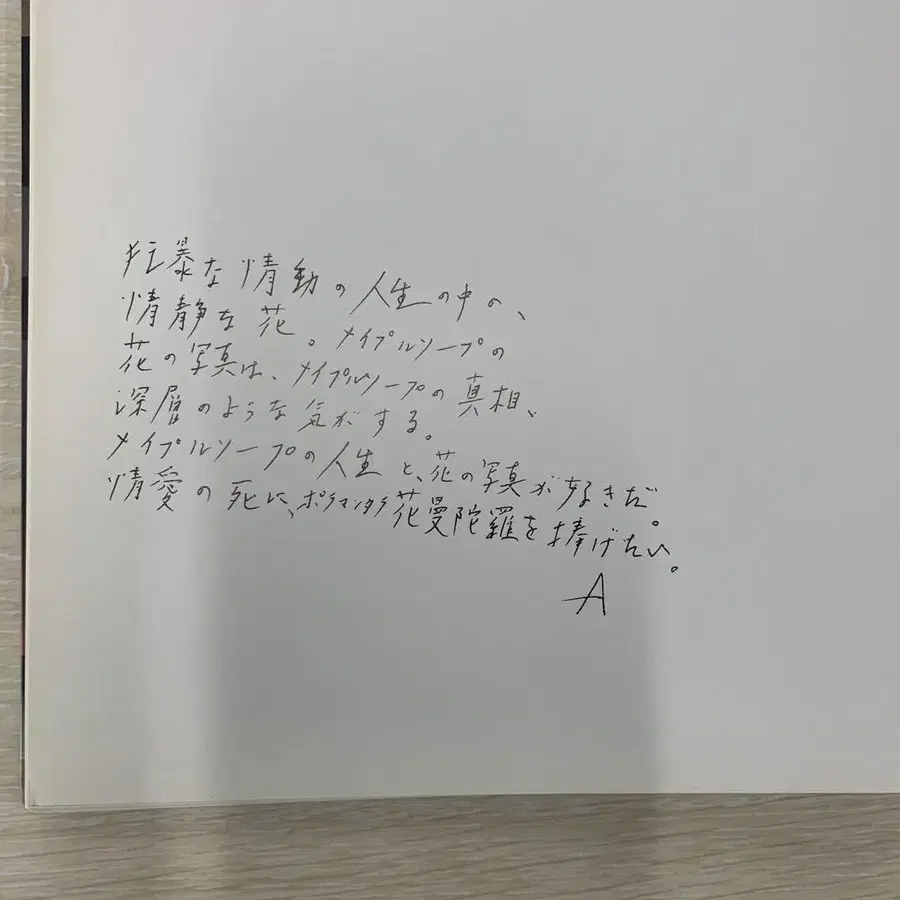 狂暴な情動の人生の中の、
情静な花。メイプルソープの
花の写真は、メイプルソープの真相、
深層のような気がする。
メイプルソープの人生と、花の写真が好きだ。
情愛の死に、ポラマンダラ花曼陀羅を捧げたい。
A